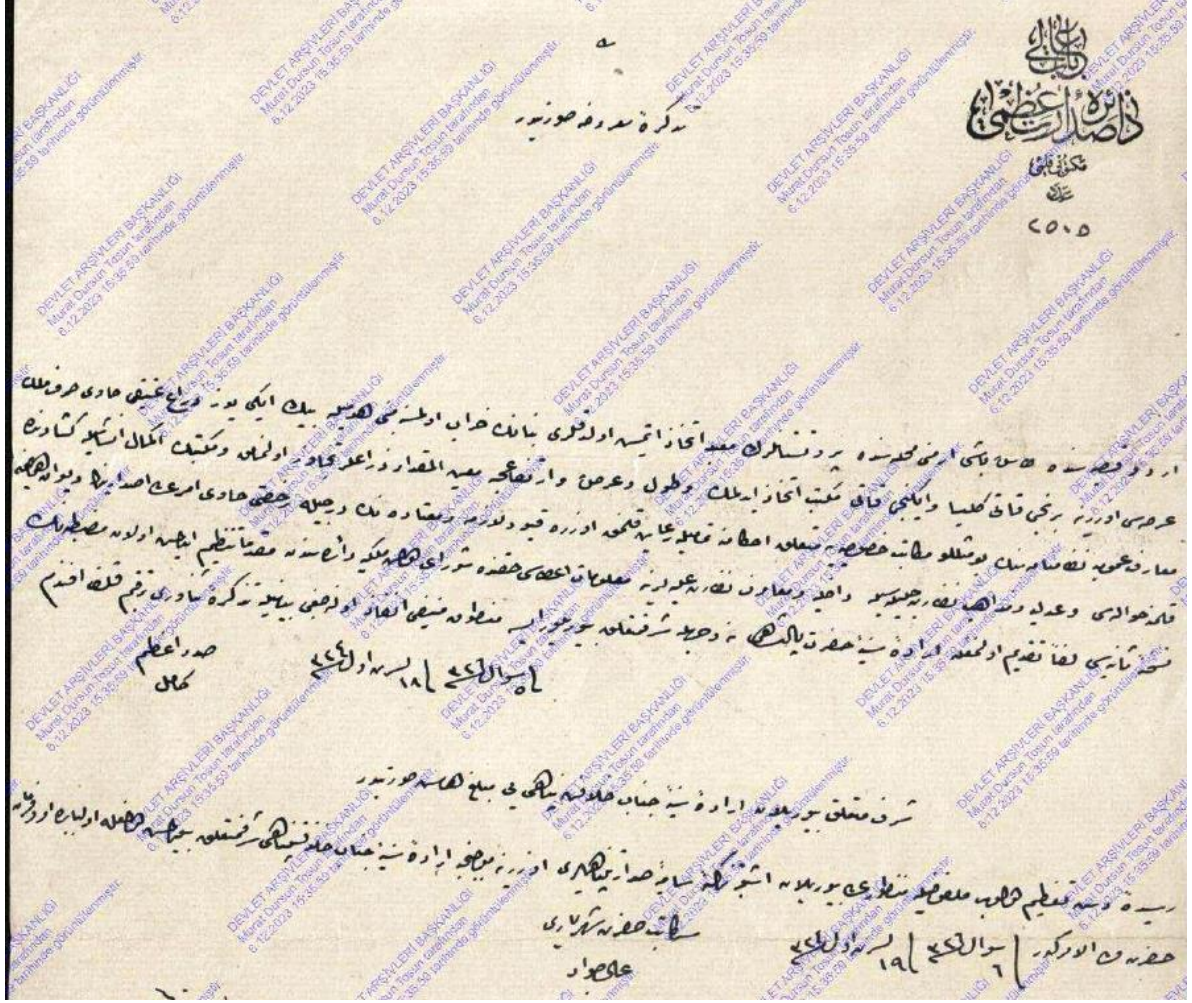 باب عالی
دائره صدارت عظمی
مکتوبی قلمی
عدد
٢٥٠٥
تذکرۀ معروضه صورتیدر
اردو قصبه سنده طاش باشی ارمنی محله سنده پروتستانلرك معبد اتخاذ ایتمش اولدقلری بنانك خراب اولمسنه مبنی هدمیله بیك ایکی یوز ذراع عتیقی حاوی صرف ملك
عرصه سی اوزرینه برنجی قاتی کلیسا و ایکنجی قاتی مکتب اتخاذ ایدلمك و طول و عرض و ارتفاعجه معین المقدار ذراعلر تجاوز اولنمامق و مکتبك اکمال انشاسیله کشادنده
معارف عمومیه نظامنامه سنك بو مثللو مکاتب خصوصیه یه متعلق احکامنه تمامیله رعایت قلنمق اوزره قیود لازمه و معتاده نك درجیله رخصتی حاوی امر عالی اصداری و دیوان همایون
قلمنه حواله سی و عدلیه و مذاهب نظارت جلیله سیله داخلیه و معارف نظارت علیه لرینه معلومات اعطاسی حقنده شورای دولت ملکیه دائره سندن مقدما تنظیم ایدلمش اولان مضبطه نك
نسخۀ ثانیه سی لفا تقدیم اولنمغله ارادۀ سنیۀ حضرت پادشاهی نه وجهله شرفمتعلق بیوریلور ایسه منطوق منیفی انفاذ اولنه جغی بیانیله تذکرۀ ثناوری ترقیم قلندی افندم
فی ٥ شوال ٣٢٦ فی ١٨ تشرین اول ٣٢٤
صدر اعظم
کامل
شرف متعلق بیوریلان ارادۀ سنیۀ جناب خلافتپناهی یی مبلغ هامش صورتیدر
رسیدۀ دست تعظیم اولوب ملفوفیله منظور عالی بیوریلان اشبو تذکرۀ سامیۀ صدارتپناهیلری اوزرینه موجبنجه ارادۀ سنیۀ جناب خلافتپناهی شرفمتعلق بیورلمش اولمغله اولبابده امر و فرمان
حضرت من له الامرکدر فی ٦ شوال ٣٢٦ فی ١٩ تشرین اول ٣٢٤
سرکاتب حضرت شهریاری
علی جواد
DEVLET ARŞİVLERİ BAŞKANLIĞI
Murat Dursun Tosun tarafından
6.12.2023 15:35:59 tarihinde görüntülenmiştir.